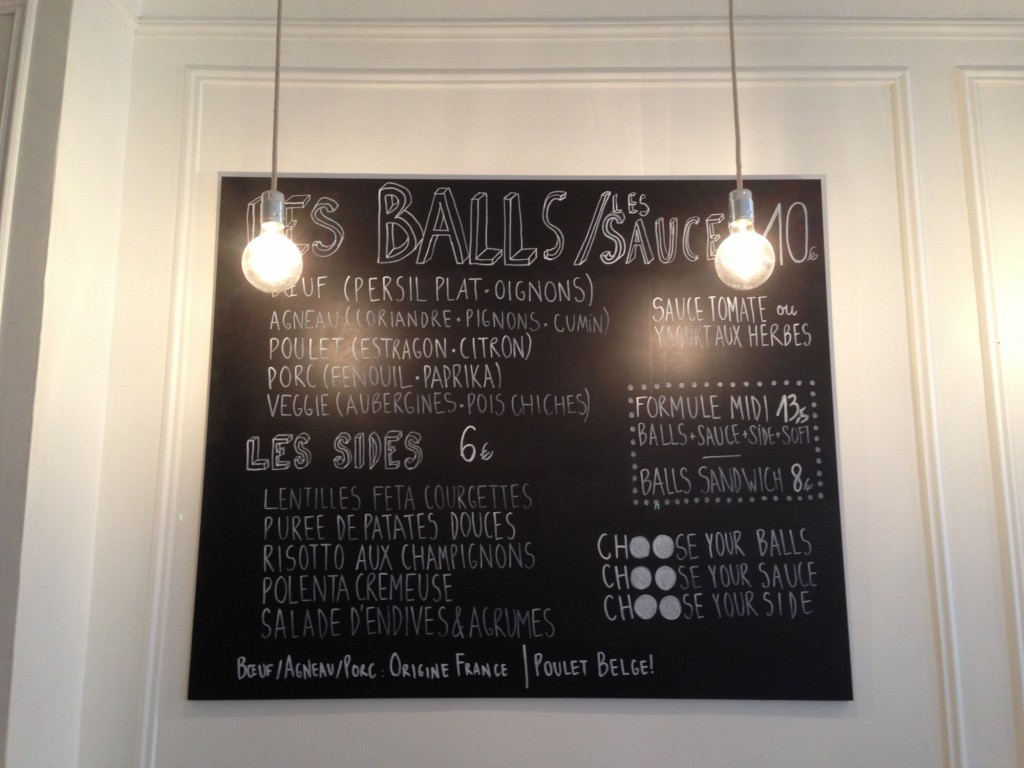 LES BALLS / LES SAUCES 10€
BŒUF (PERSIL PLAT • OIGNONS)
AGNEAU (CORIANDRE • PIGNONS • CUMIN)
POULET (ESTRAGON • CITRON)
PORC (FENOUIL • PAPRIKA)
VEGGIE (AUBERGINES • POIS CHICHES)
SAUCE TOMATE ou
YAOURT AUX HERBES
FORMULE MIDI 13,5
BALLS + SAUCE + SIDE + SOFT
BALLS SANDWICH 8€
LES SIDES 6€
LENTILLES FETA COURGETTES
PUREE DE PATATES DOUCES
RISOTTO AUX CHAMPIGNONS
POLENTA CREMEUSE
SALADE D'ENDIVES & AGRUMES
CHOOSE YOUR BALLS
CHOOSE YOUR SAUCE
CHOOSE YOUR SIDE
BŒUF/AGNEAU/PORC : ORIGINE FRANCE | POULET BELGE!